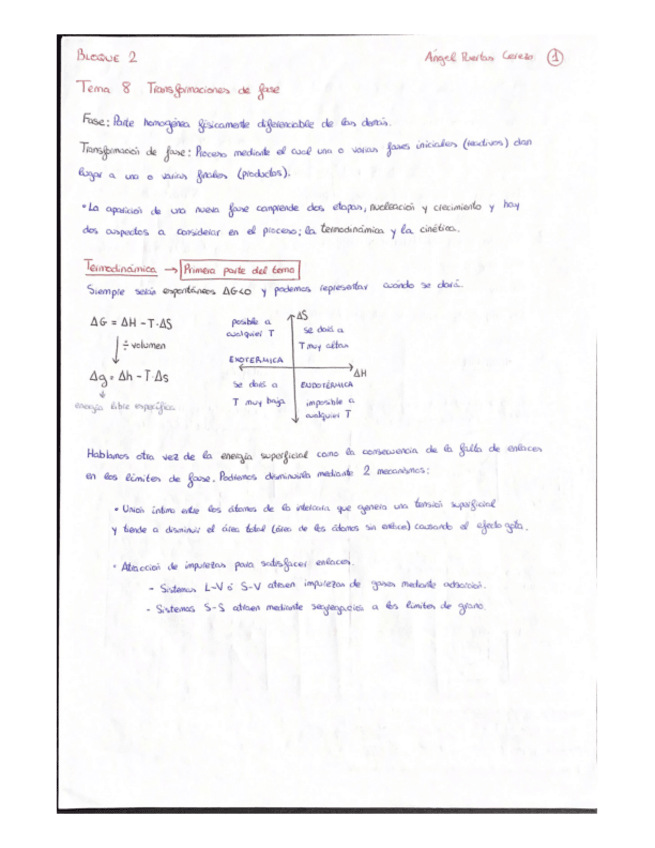 BLOQUE 2
Ángel Puertas Cerezo 1
Tema 8 Transformaciones de fase
Fase: Parte homogénea físicamente diferenciable de las demás.
Transformación de fase: Proceso mediante el cual una o varias fases iniciales (reactivos) dan
lugar a una o varias finales (productos).
• La aparición de una nueva fase comprende dos etapas, nucleación y crecimiento y hay
dos aspectos a considerar en el proceso; la termodinámica y la cinética.
Termodinámica → Primera parte del tema
Siempre sería espontáneos ΔG<0 y podemos representar cuándo se dará.
ΔG = ΔH - T·ΔS
÷ volumen
Δg = Δh - T·Δs
energía libre específica
ΔS
posible a
cualquier T
se dará a
T muy altas
EXOTÉRMICA
ΔH
se dará a
T muy baja
ENDOTÉRMICA
imposible a
cualquier T
Hablamos otra vez de la energía superficial como la consecuencia de la falta de enlaces
en los límites de fase. Podremos disminuirla mediante 2 mecanismos:
• Unión íntima entre los átomos de la intercara que genera una tensión superficial
y tiende a disminuir el área total (área de los átomos sin enlace) causando el efecto gota.
• Atracción de impurezas para satisfacer enlaces.
- Sistemas L-V ó S-V atraen impurezas de gases mediante adsorción.
- Sistemas S-S atraen mediante segregación a los límites de grano.